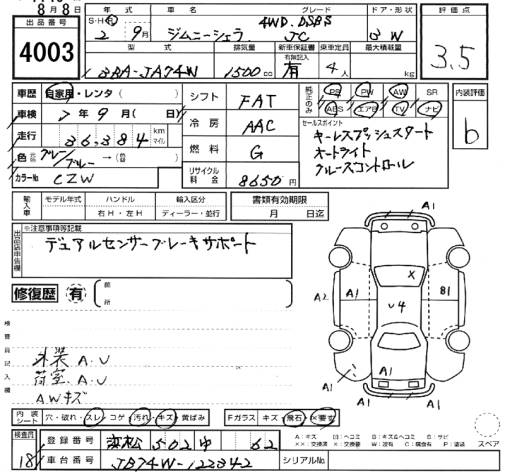 8月8日
出品番号
4003
年式
車名
グレード
ドア・形状
評価点
S・H・R
2年 9月
ジムニーシエラ
4WD.DSBS
JC
3 W
3.5
型式
排気量
新車保証書
乗車定員
最大積載量
3BA-JA74W
1500cc
有無記入
有
4人
kg
車歴
自家用・レンタ
シフト
FAT
純正のみ
PS
PW
AW
SR
ABS
エアB
TV
ナビ
内装評価
b
車検
7年9月( 日)
冷房
AAC
セールスポイント
キーレスプッシュスタート
オートライト
クルーズコントロール
走行
36,384
km
マイル
燃料
G
色
ブルー
ブルー→(
リサイクル料金
8650円
カラーNo
CZW
輸入車
モデル年式
ハンドル
輸入区分
右H・左H
ディーラー・並行
書類有効期限
月 日迄
※注意事項等記載
デュアルセンサーブレーキサポート
修復歴
有
前
所
検査員記入欄
外装 A.U
荷室.A.U
AWキズ
A1
A1
A2
A1
×
U4
B1
A1
A1
内装シート
穴・破れ・スレ・コゲ・汚れ・キズ・黄ばみ
Fガラス
キズ・飛石・×要交
A:キズ
U:ヘコミ
B:キズ&ヘコミ
S:サビ
××:交換済
X:交換
W:波有
C:腐食有
P:塗装
スペア
検査員
18
登録番号
浜松 502 ゆ 62
車台番号
JB74W-122842
シリアルNo